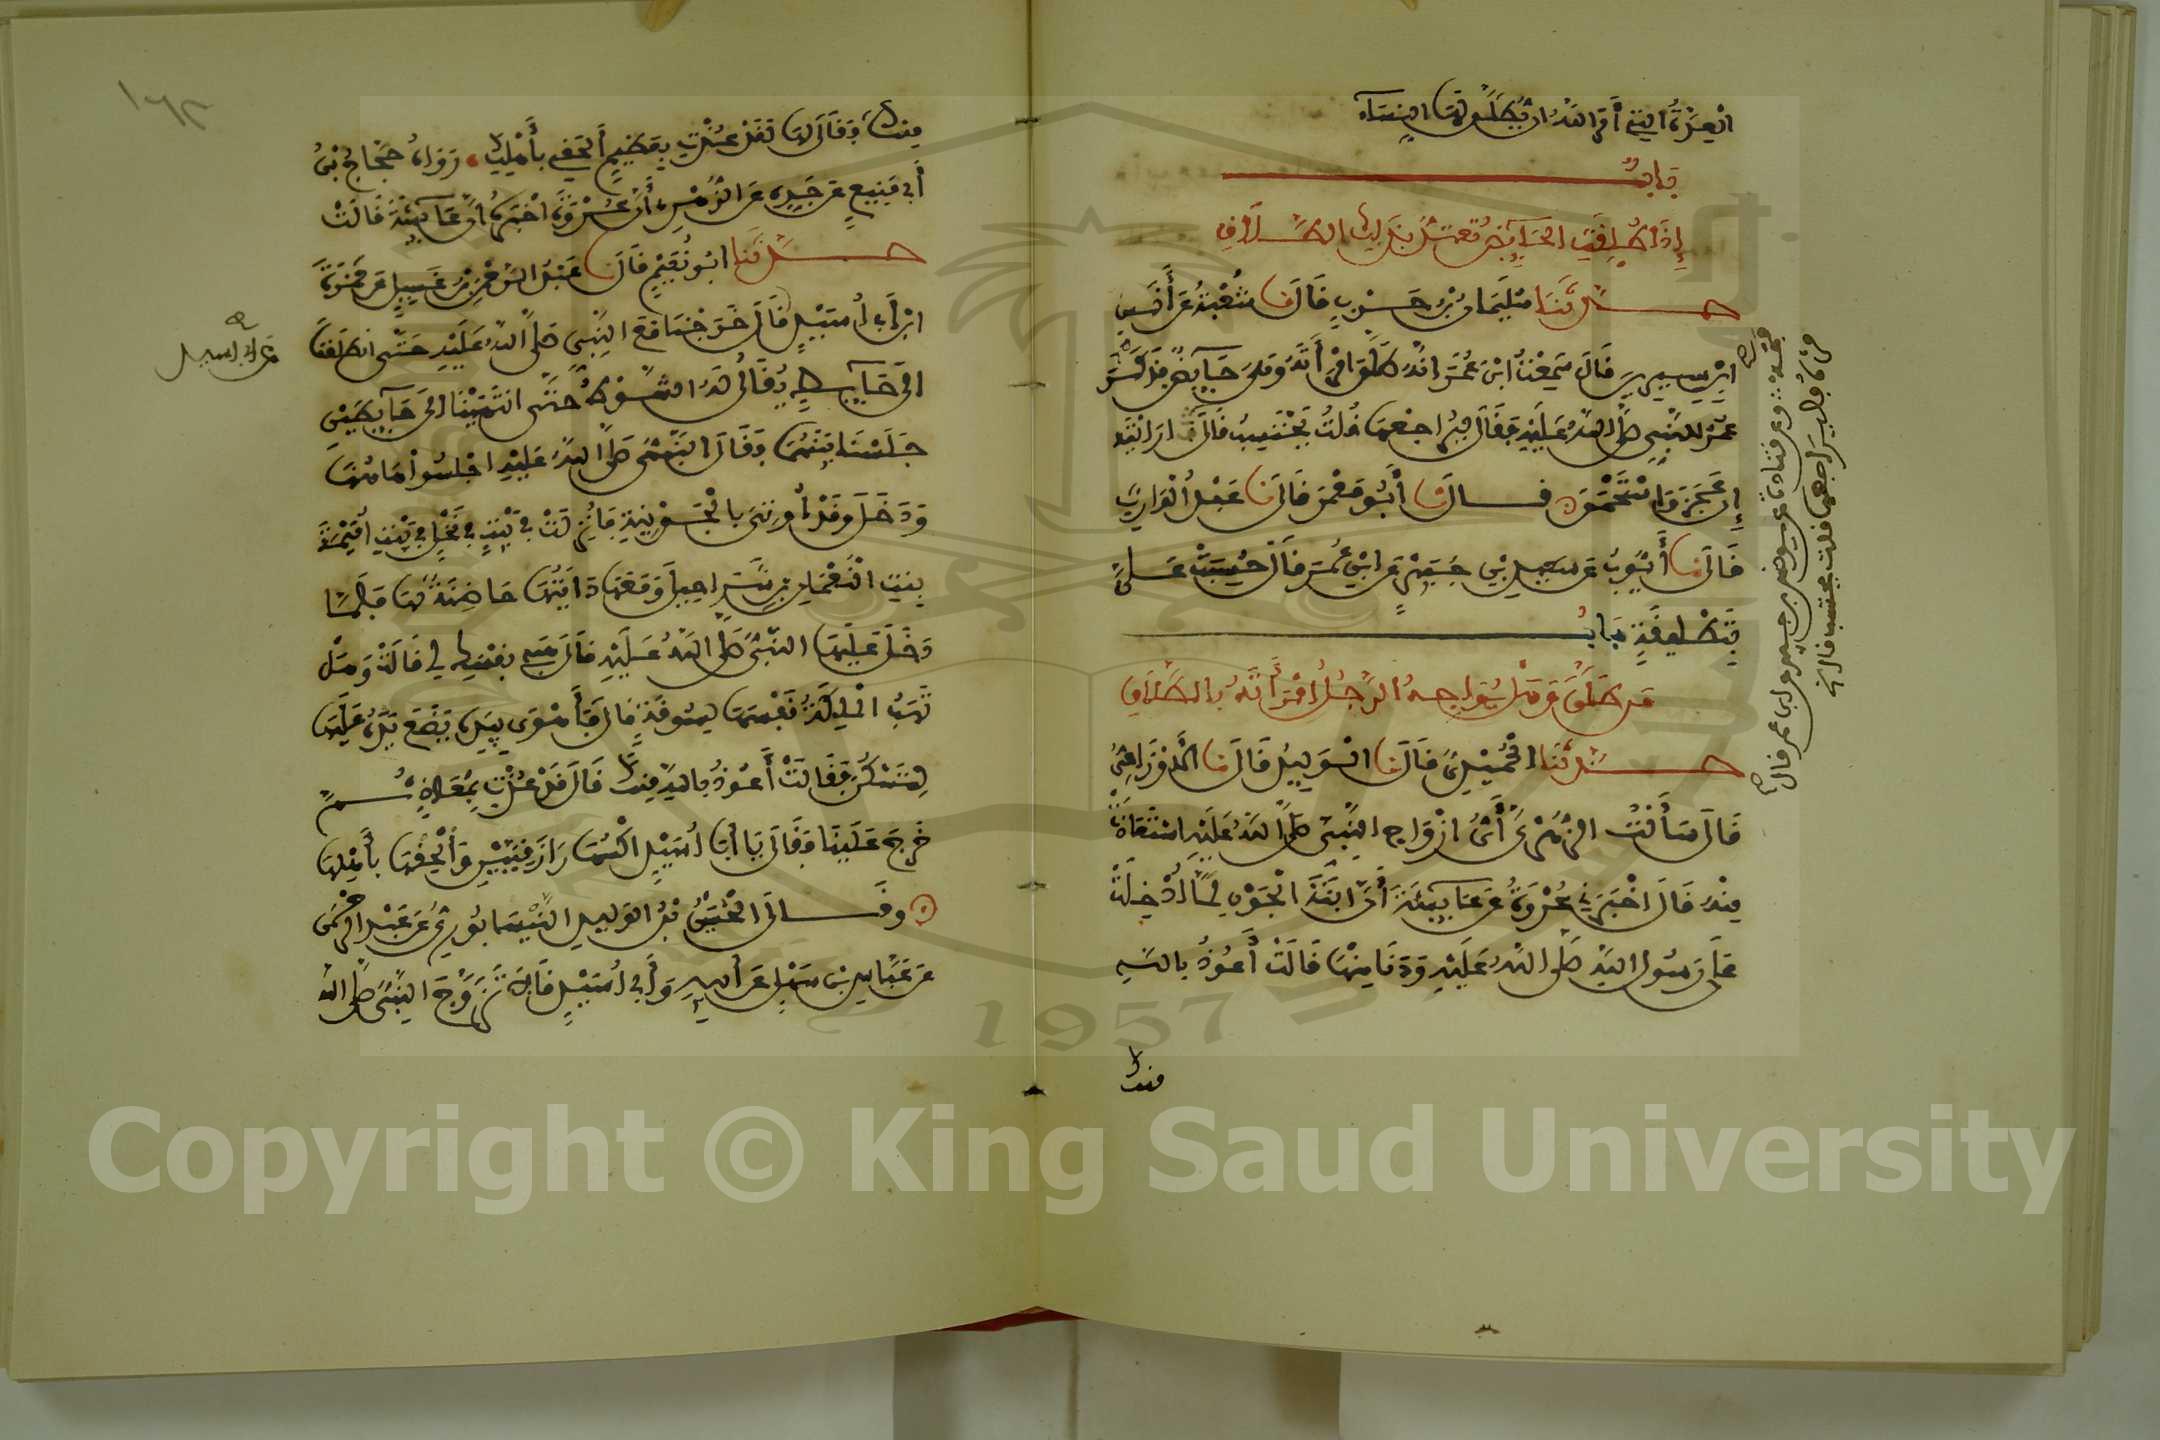 العِدَّةُ التي أَمَرَ اللهُ ان تُطَلَّقَ لَهَا النِسَاء
بَابُ
إِذَا طُلِّقَتِ الحَايِضُ تُعتَدُّ بِذَلِكَ الطَّلَاقِ
حَدَّثَنَا سُلَيمَانُ بْنُ حَرْبٍ قَالَ نَا شُعْبَةُ عَن أَنَسِ
ابْنِ سِيرِينَ قَالَ سَمِعْتُ ابْنَ عُمَرَ انَّهُ طَلَّقَ امْرَأَتَهُ وَهِيَ حَايِضٌ فَذَكَرَ
عُمَرُ للنَّبِيِّ صَلَّى اللهُ عَلَيْهِ فَقَالَ لِيُرَاجِعْهَا قُلْتُ تُحْتَسَبُ قَالَ ارَايْتَهُ
إِن عَجَزَ وَاسْتَحْمَقَ وقَالَ نَا أَبُو مَعْمَرٍ قَالَ نَا عَبْدُ الْوَارِثِ
قَالَ نَا أَيُّوبُ عَن سَعِيدِ بْنِ جُبَيْرٍ عَنِ ابْنِ عُمَرَ قَالَ حُسِبَتْ عَلَيَّ
بِتَطْلِيقَةٍ بَابُ
مَن طَلَّقَ وَهَلْ يُوَاجِهُ الرَّجُلُ امْرَأَتَهُ بِالطَّلَاقِ
حَدَّثَنَا الْحُمَيْدِيُّ قَالَ نَا الْوَلِيدُ قَالَ نَا الْأَوْزَاعِيُّ
قَالَ سَأَلْتُ الزُّهْرِيَّ أَيُّ ازْوَاجِ النَّبِيِّ صَلَّى اللهُ عَلَيْهِ اسْتَعَاذَتْ
مِنْهُ قَالَ اخْبَرَنِي عُرْوَةُ عَن عَايِشَةَ أَنَّ ابْنَةَ الْجَوْنِ لَمَّا أُدْخِلَتْ
عَلَى رَسُولِ اللهِ صَلَّى اللهُ عَلَيْهِ وَدَنَا مِنْهَا قَالَتْ أَعُوذُ بِاللهِ
منك
مِنْكَ فَقَالَ لَهَا لَقَدْ عُذْتِ بِعَظِيمٍ الْحَقِي بِأَهْلِكِ رَوَاهُ حَجَّاجُ بْنُ
أَبِي مَنِيعٍ عَن جَدِّهِ عَنِ الزُّهْرِيِّ أَنَّ عُرْوَةَ اخْبَرَهُ انَّ عَايِشَةَ قَالَتْ
حَدَّثَنَا ابُو نُعَيْمٍ قَالَ نَا عَبْدُ الرَّحْمٰنِ بْنُ غَسِيلٍ عَن حَمْزَةَ
ابْنِ أَبِي أُسَيْدٍ قَالَ خَرَجْنَا مَعَ النَّبِيِّ صَلَّى اللهُ عَلَيْهِ حَتَّى انطَلَقْنَا
الَى حَايِطٍ يُقَالُ لَهُ الشَّوْطُ حَتَّى انْتَهَيْنَا الَى حَايِطَيْنِ
جَلَسْنَا بَيْنَهُمَا فَقَالَ النَّبِيُّ صَلَّى اللهُ عَلَيْهِ اجْلِسُوا هَاهُنَا
وَدَخَلَ وَقَدْ أُوتِيَ بِالْجَوْنِيَّةِ فَأُنْزِلَتْ فِي بَيْتٍ فِي نَخْلٍ فِي بَيْتِ أُمَيْمَةَ
بِنْتِ النُّعْمَانِ بْنِ شَرَاحِيلَ وَمَعَهَا دَايَتُهَا حَاضِنَةٌ لَهَا فَلَمَّا
دَخَلَ عَلَيْهَا النَّبِيُّ صَلَّى اللهُ عَلَيْهِ قَالَ هَبِي نَفْسَكِ لِي قَالَتْ وَهَلْ
تَهَبُ الْمَلِكَةُ نَفْسَهَا لِسُوقَةٍ قَالَ فَأَهْوَى بِيَدِهِ يَضَعُ يَدَهُ عَلَيْهَا
لِتَسْكُنَ فَقَالَتْ أَعُوذُ بِاللهِ مِنكَ قَالَ قَدْ عُذْتِ بِمَعَاذٍ ثُمَّ
خَرَجَ عَلَيْنَا فَقَالَ يَا أَبَا أُسَيْدٍ اكْسُهَا رَازِقِيَّيْنِ وَأَلْحِقْهَا بِأَهْلِهَا
وَقَالَ الْحُسَيْنُ بْنُ الوَلِيدِ النَّيْسَابُورِيُّ عَن عَبْدِ الرَّحْمٰنِ
عَن عَبَّاسِ بْنِ سَهْلٍ عَن أَبِيهِ وَأَبِي أُسَيْدٍ قَالَا تَزَوَّجَ النَّبِيُّ صَلَّى اللهُ
١٦٢
Copyright © King Saud University
1957